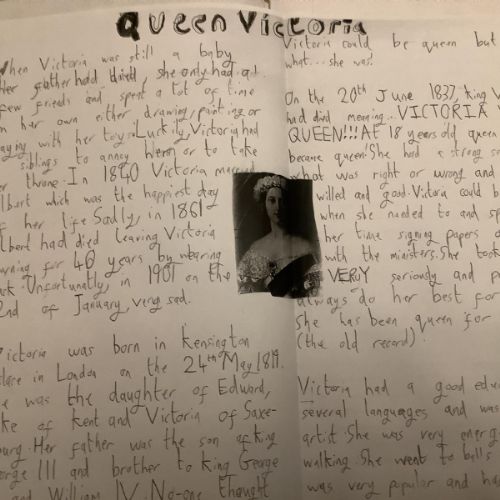 Queen Victoria
When Victoria was still a baby
her father had died, she only had a
few friends and spent a lot of time
on her own either drawing, painting or
playing with her toys. Luckily Victoria had
siblings to annoy her or to take
throne. In 1840 Victoria
Albert which was the happiest day
of her life. Sadly, in 1861
Albert had died leaving Victoria
for 40 years by wearing
Unfortunatly, in 1901 on the
of January, very sad.
Victoria was born in Kensington
in London on the 24th May 1819.
was the daughter of Edward,
of Kent and Victoria of Saxe-
Her father was the son of King
George III and brother to King George
and William IV. No-one thought
Victoria could be queen but
what... she was!
On the 20th June 1837, King
had died meaning.. VICTORIA
QUEEN!!! AT 18 years old queen
became queen! She had a strong
what was right or wrong and
willed and good. Vitora could
when she needed to and
her time signing papers
with the ministers. She took
VERY seriously and
always do her best for
She has been queen for
(the old record).
Victoria had a good
several languages and was
artist. She was very
walking. She went to balls
was very populor and